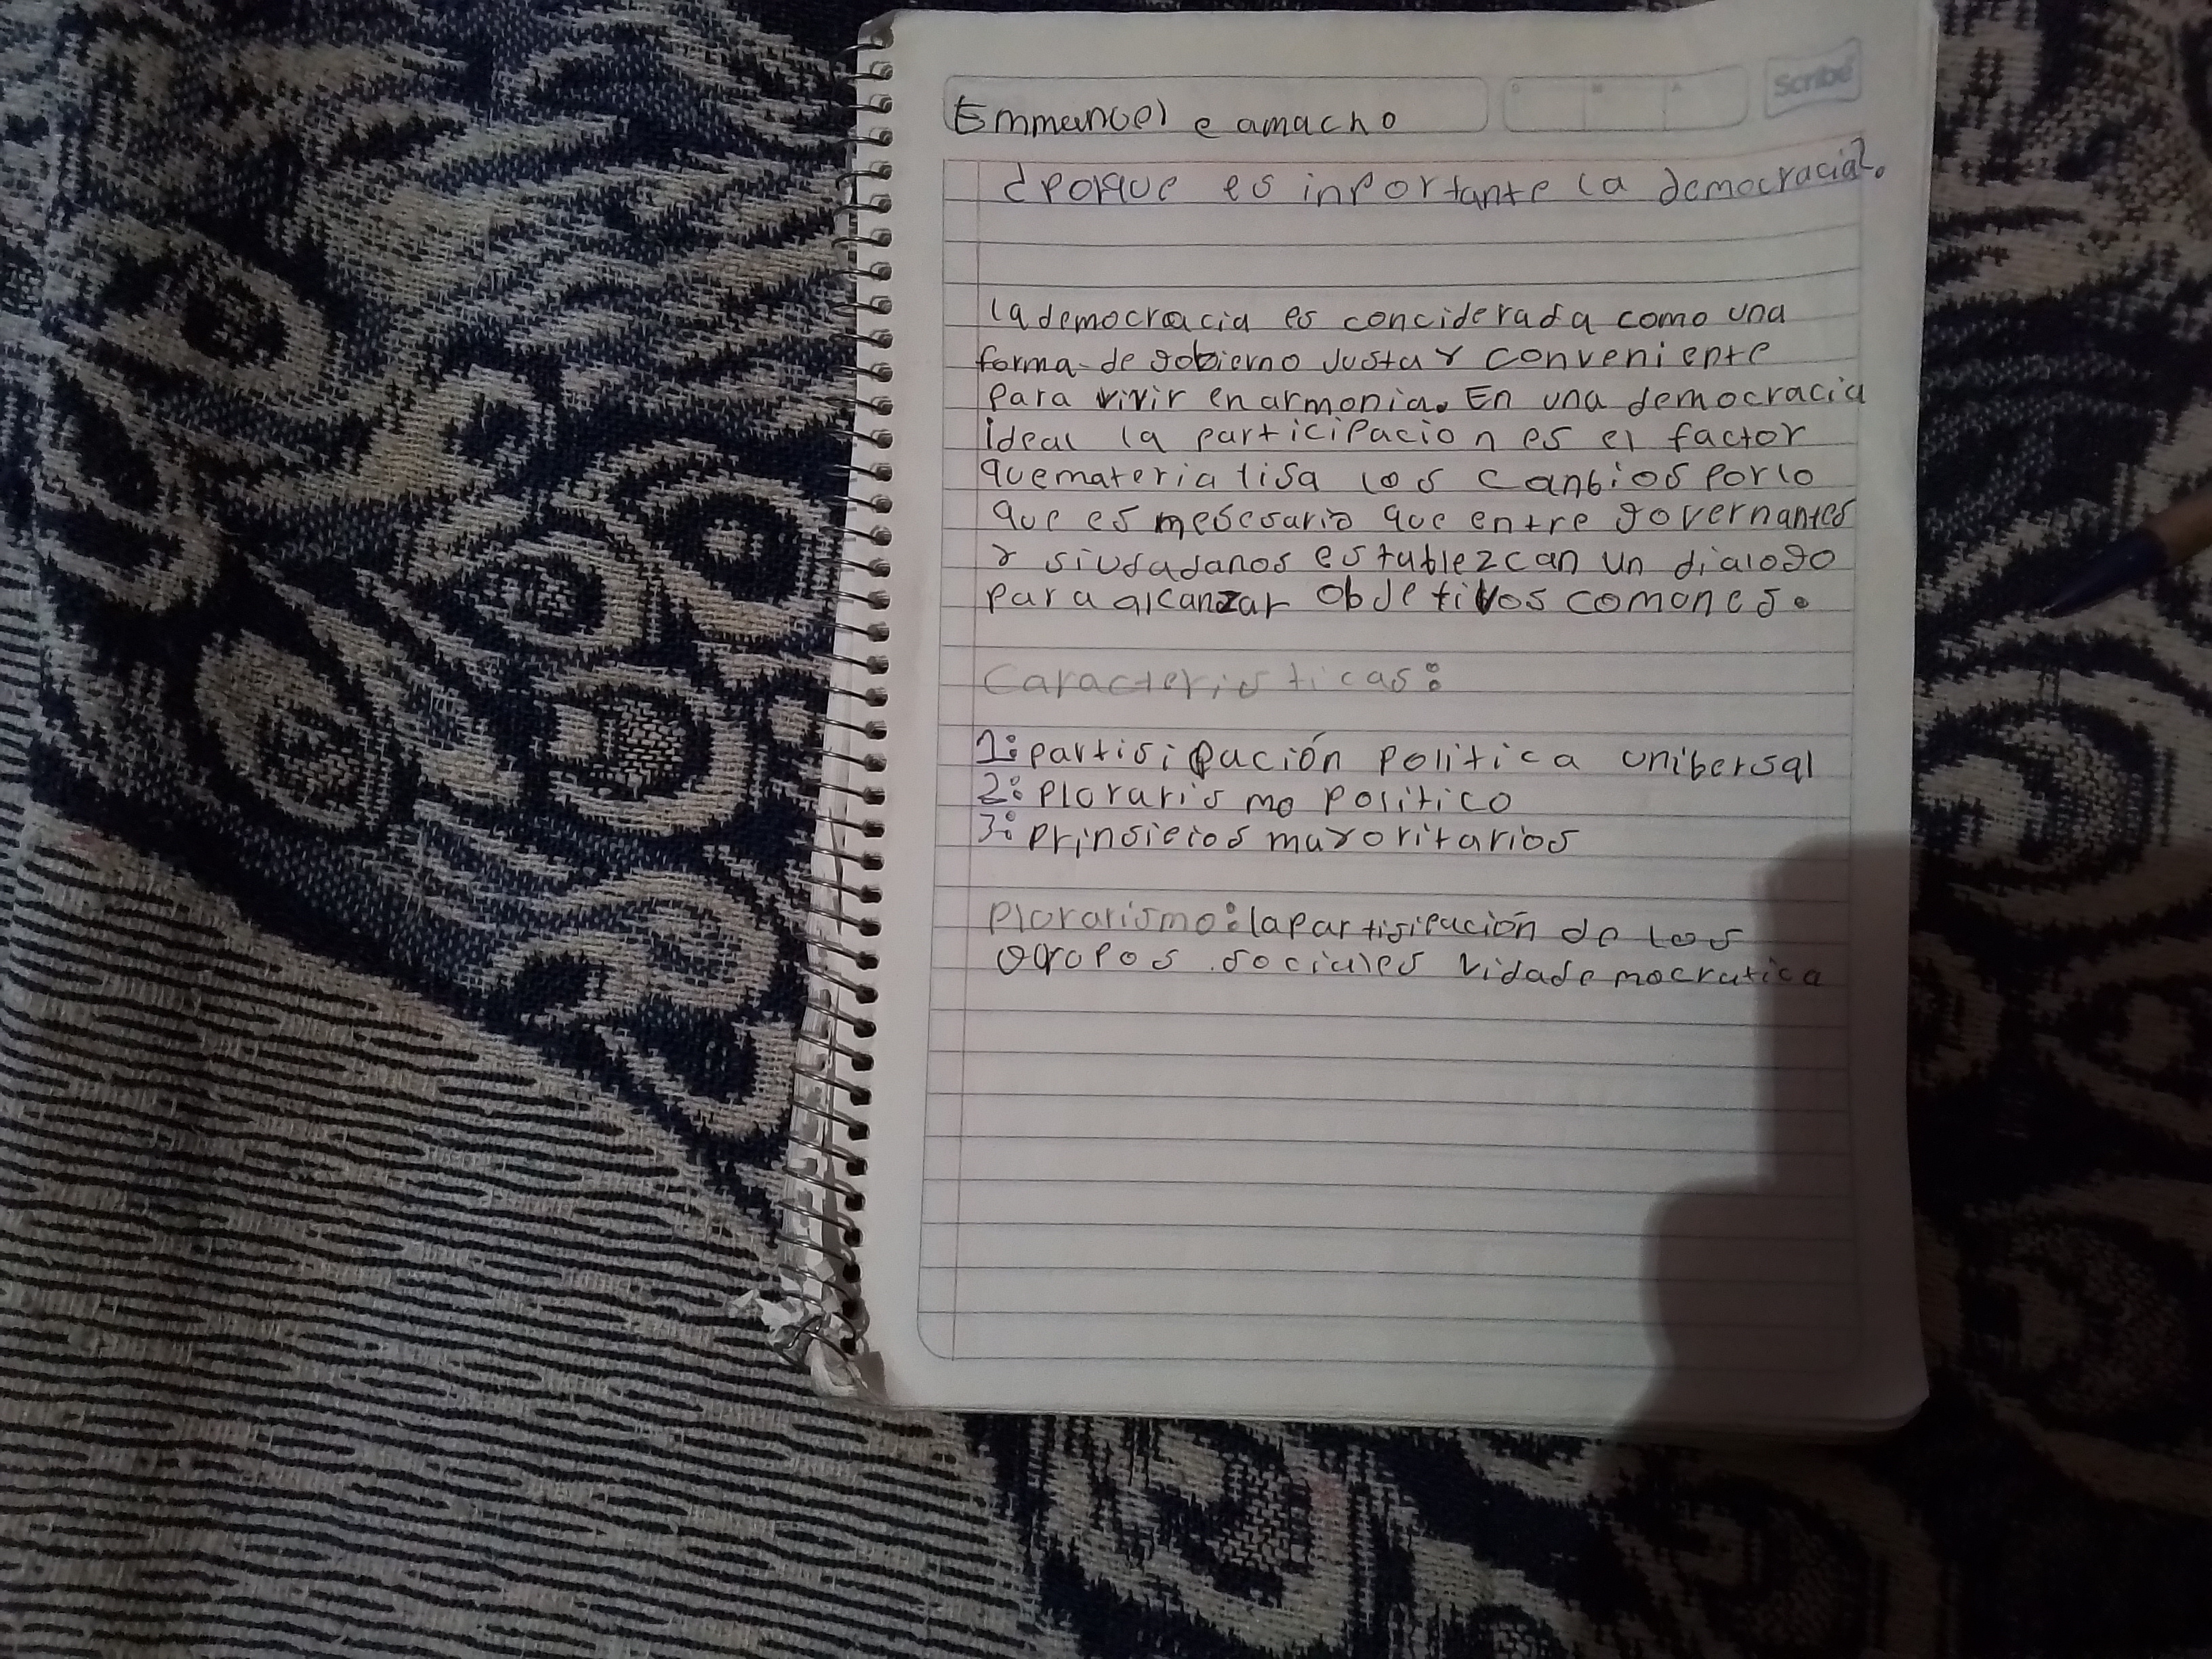 Scribe
Emmanuel camacho
¿Porque es inportante la democracia?.
la democracia es conciderada como una
forma de gobierno justa y conveniente
para vivir en armonia. En una democracia
ideal la participacion es el factor
que materialisa los canbios por lo
que es nesesario que entre governantes
y siudadanos establezcan un dialogo
para alcanzar obdetivos comones.
Caracteristicas:
1: partisipación politica unibersal
2: plorarismo politico
3: prinsipios mayoritarios
plorarismo: la partisipación de los
gropos sociales vida democratica